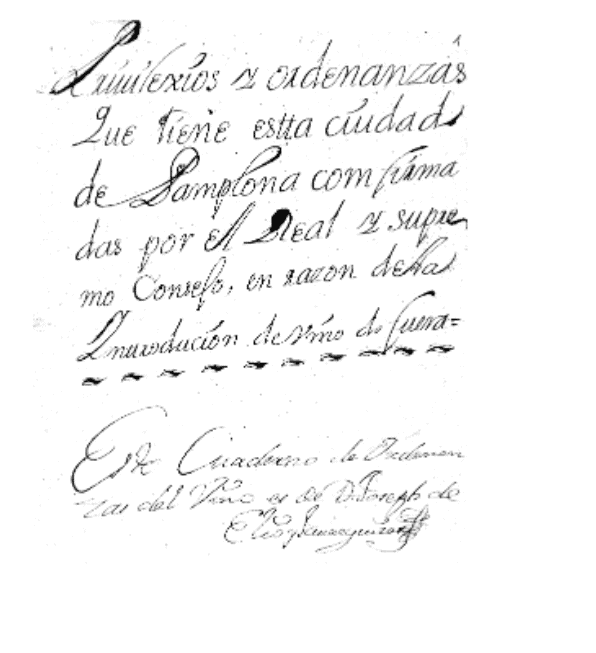 Priuilexios y ordenanzas
Que tiene estta ciudad
de Pamplona comfirma
das por el Real y supre
mo Consejo, en razon de la
Introducion de vino de fuera=
Este Cuaderno de Ordenan
zas del Vino es de D. Joseph de